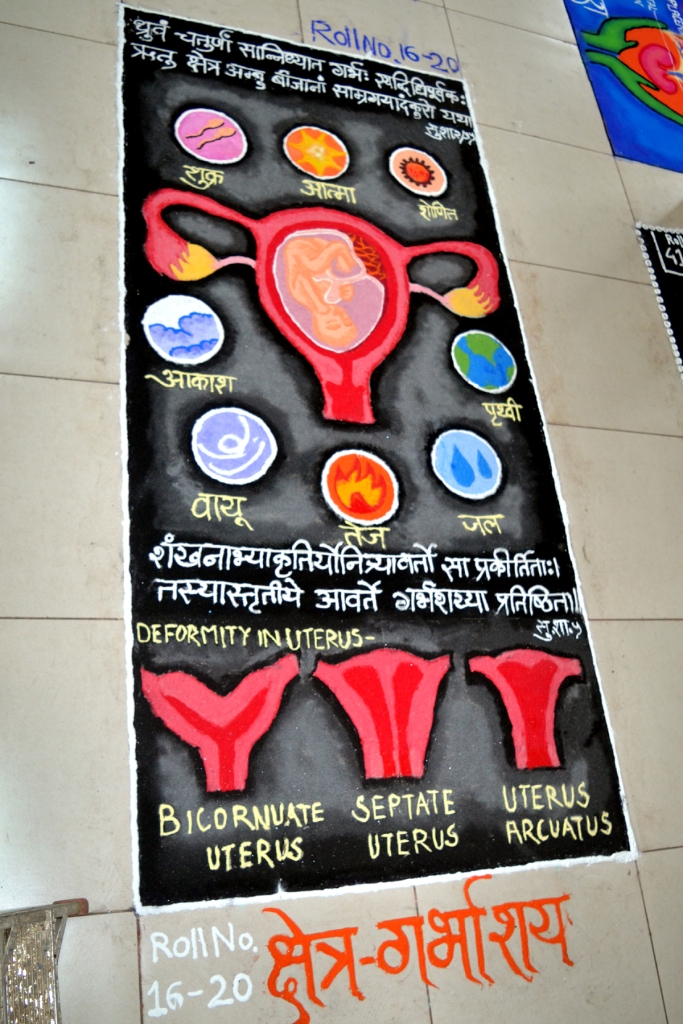 Roll No. 16-20
ध्रुवं चतुर्णां सान्निध्यात गर्भः स्यद्विधिपूर्वकः
ऋतु क्षेत्र अम्बु बीजानां सामग्रयादंकुरो यथा
सु.शा.
शुक्र
आत्मा
शोणित
आकाश
पृथ्वी
वायू
तेज
जल
शंखनाभ्याकृतिर्योनित्र्यावर्ता सा प्रकीर्तिताः।
तस्यास्तृतीये आवर्ते गर्भशय्या प्रतिष्ठिता॥
सु.शा.५
DEFORMITY IN UTERUS-
BICORNUATE UTERUS
SEPTATE UTERUS
UTERUS ARCUATUS
Roll No.
16-20
क्षेत्र-गर्भाशय